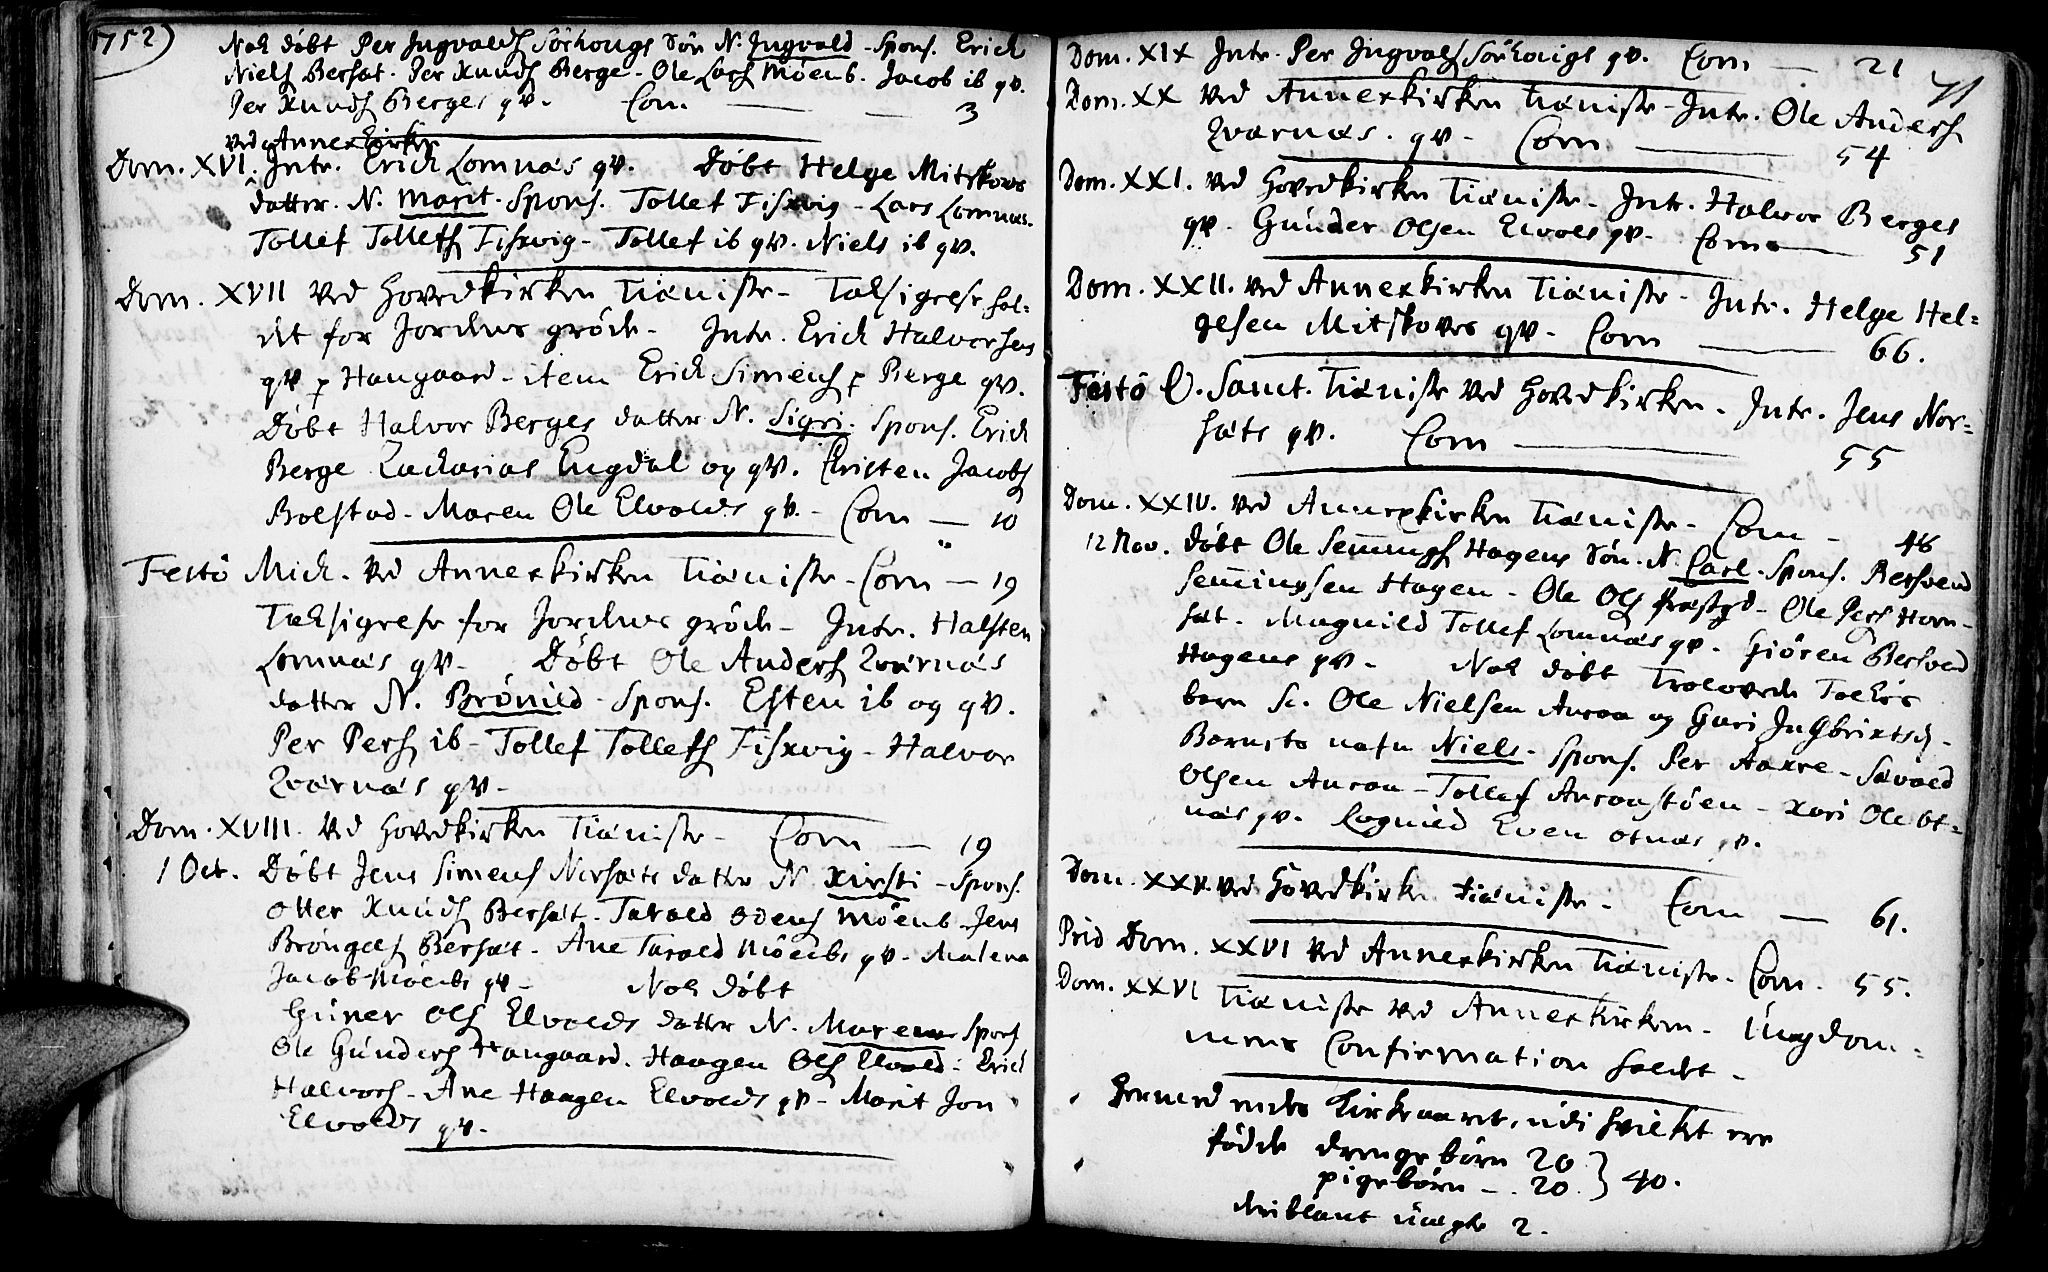 1752)
Nok döbt Per Ingvalds Sörhougs Sön N. Ingvald - Spons. Erich
Niels Bersæt. Per Knuds Berge - Ole Lars Möenb. Jacob ib qv.
Per Knuds Berges qv. Com — 3
ved Annexkirken
Dom. XVI. Intr. Erich Lomnæs qv. Döbt Helge Mitskows
datter. N. Marit. Spons. Tollef Fiskvig - Lars Lomnæs.
Tollef Tollefs Fiskvig - Tollef ib qv. Niels ib qv.
Dom. XVII ved Hovedkirken Tieniste - Taksigelse hol-
dt for Jordens gröde - Intr. Erich Halvorsens
qv p Haugaard - item Erich Simens p Berge qv.
Döbt Halvor Berges datter N. Sigri. Spons. Erich
Berge Zacharias Engdal og qv. Christen Jacobs
Bolstad - Maren Ole Elvolds qv. - Com — 10
Festö Mich. ved Annexkirken Tieniste - Com — 19
Taksigelse for Jordens gröde - Intr. Halsten
Lomnæs qv - Döbt Ole Anders Kværnæs
datter N. Brönild - Spons. Esten ib og qv.
Per Pers ib - Tollef Tollefs Fiskvig - Halvor
Kværnæs qv -
Dom. XVIII. ved Hovedkirken Tieniste - Com — 19
1 Oct. Döbt Jens Simens Norsæts datter N Kirsti - Spons.
Otter Knuds Bersæt - Tarald Odens Möenb - Jens
Bröngels Bersæt - Ane Tarald Möenbs qv - Malena
Jacob Möenbs qv - Nok döbt
Guner Ols Elvolds datter N. Maren Spons
Ole Gunders Haugaard. Haagen Ols Elvold - Erich
Halvors - Ane Haagen Elvolds qv - Marit Jon
Elvolds qv -
Dom. XIX Intr. Per Ingvals Sörhougs qv. Com — 21
71
Dom. XX ved Annexkirken Tieniste - Intr. Ole Anders
Kværnæs. qv - Com — 54
Dom. XXI. ved Hovedkirken Tieniste - Intr. Halvor Berges
qv - Gunder Olsen Elvols qv - Com — 51
Dom. XXII. ved Annexkirken Tieniste - Intr. Helge Hel-
gesen Mitskowes qv - Com — 66.
Festö O. Sanct. Tieniste ved Hovedkirken - Intr. Jens Nor-
sæts qv. Com — 55
Dom. XXIV. ved Annexkirken Tieniste - Com - 46
12 Nov. döbt Ole Semmings Hagens Sön. N. Carl - Spons. Bersvend
Semmingsen Hagen - Ole Ols Præstgd - Ole Pers Horn-
sæt - Magnild Tollef Lomnæs qv. Giören Bersvend
Hagens qv - Nok döbt Trolovede Folkes
barn Sc. Ole Nielsen Auraa og Guri Ingbrictsd -
Barnets nafn Niels - Spons. Per Aakre - Sævald
Olsen Auraa - Tollef Auraastöen - Kari Ole Ot-
næs qv. Ragnild Even Otnæs qv.
Dom. XXV. ved Hovedkirken tieniste - Com — 61.
Prid Dom. XXVI ved Annexkirken Tieniste - Com - 55.
Dom. XXVI Tieniste ved Annexkirken - Ungdom-
mens Confirmation holdt -
Hermed endes Kirkeaaret, udi hvilket ere
födde drengebörn 20
pigebörn - 20 } 40.
deriblant uægte 2.